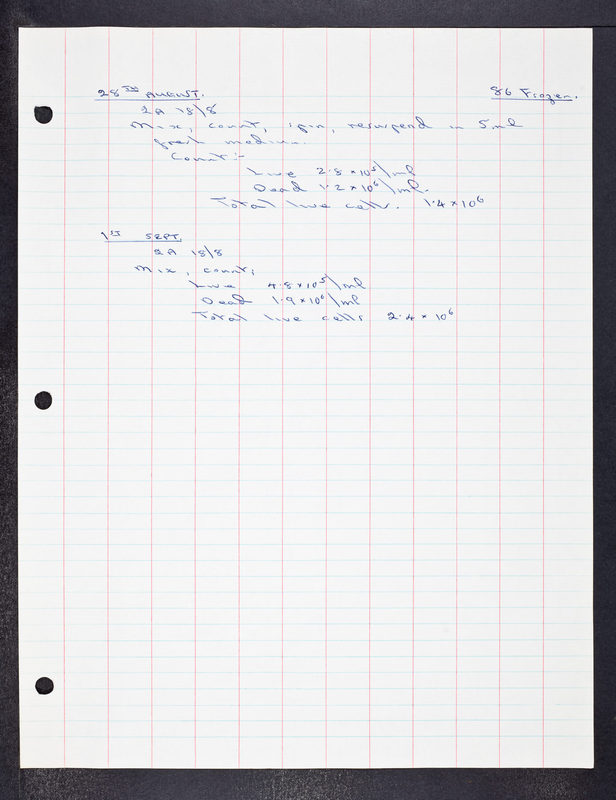 28TH AUGUST. 86 Frozen.
2A 18/8
Mix, count, spin, resuspend in 5ml
fresh medium.
Count:-
Live 2.8 × 10⁵/ml
Dead 1.2 × 10⁶/ml.
Total live cells. 1.4 × 10⁶
1ST SEPT.
2A 18/8
Mix, count;
Live 4.8 × 10⁵/ml
Dead 1.9 × 10⁶/ml
Total live cells 2.4 × 10⁶